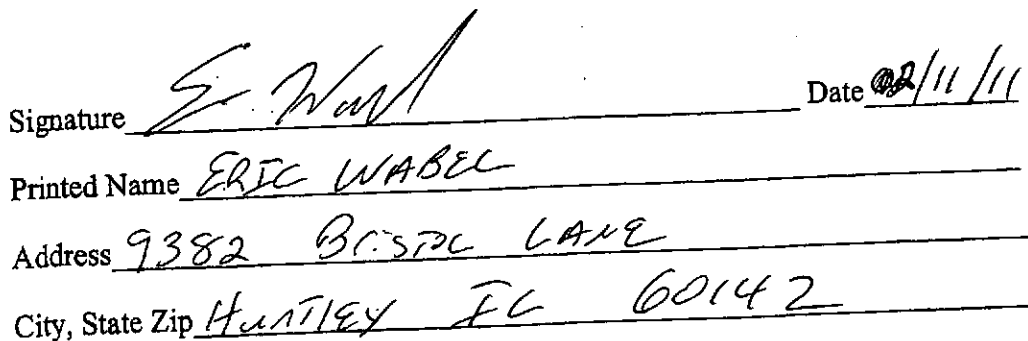 Signature E Wabel Date 02/11/11
Printed Name ERIC WABEL
Address 9382 BRISTOL LANE
City, State Zip HUNTLEY IL 60142